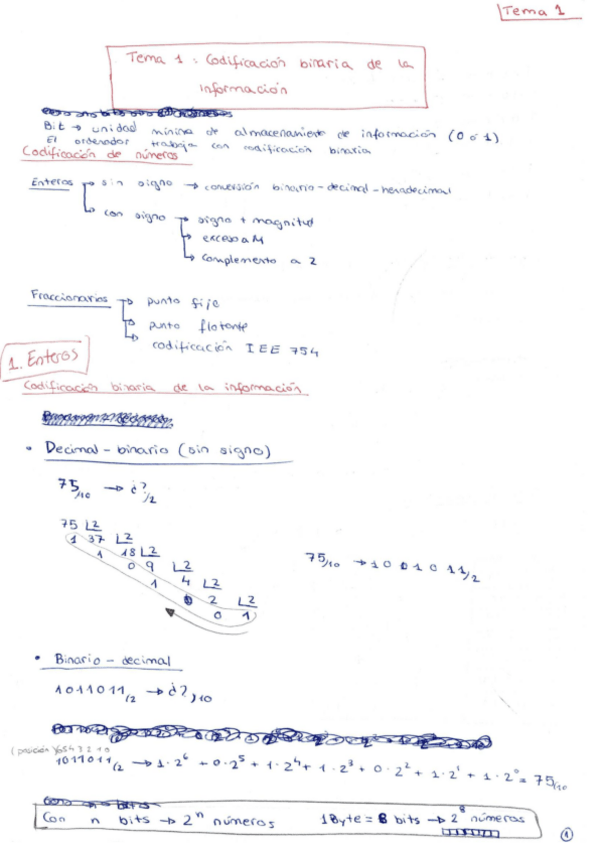 Tema 1
Tema 1 : Codificación binaria de la
información
Bit → unidad mínima de almacenamiento de información (0 ó 1)
El ordenador trabaja con codificación binaria
Codificación de números
Enteros → sin signo → conversión binario-decimal-hexadecimal
→ con signo → signo + magnitud
→ exceso a M
→ complemento a 2
Fraccionarios → punto fijo
→ punto flotante
→ codificación IEE 754
1. Enteros
Codificación binaria de la información
• Decimal - binario (sin signo)
75/10 → ¿?/2
75 |2
1 37 |2
1 18 |2
0 9 |2
1 4 |2
0 2 |2
0 1
75/10 → 1001011/2
• Binario - decimal
1011011/2 → ¿?/10
(posición) 6 5 4 3 2 1 0
1011011/2 → 1·2⁶ + 0·2⁵ + 1·2⁴ + 1·2³ + 0·2² + 1·2¹ + 1·2⁰ = 75/10
Con n bits → 2ⁿ números 1Byte = 8 bits → 2⁸ números
1